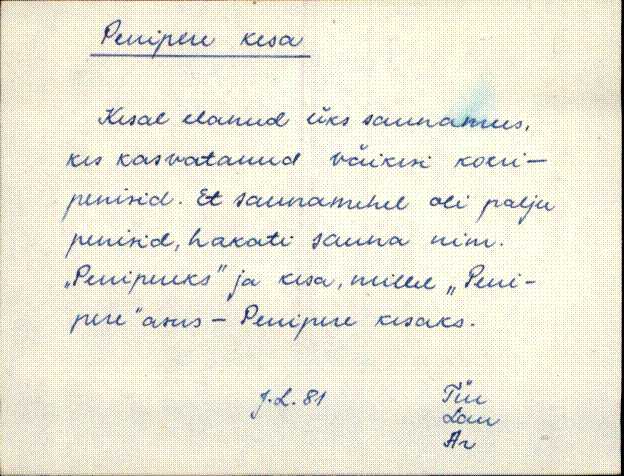 Penipere kesa
Kesal elanud üks saunamees,
kes kasvatanud väikesi koeri-
penisid. Et saunamehel oli palju
penisid, hakati sauna nim.
„Penipereks" ja kesa, millel „Peni-
pere" asus - Penipere kesaks.
J.L. 81
Tür
Lau
Ar